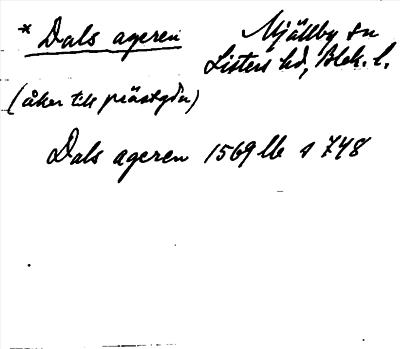 * Dals ageren
Mjällby sn
Listers hd, Blek. l.
(åker till prästgdn)
Dals ageren 1569 lb s 748